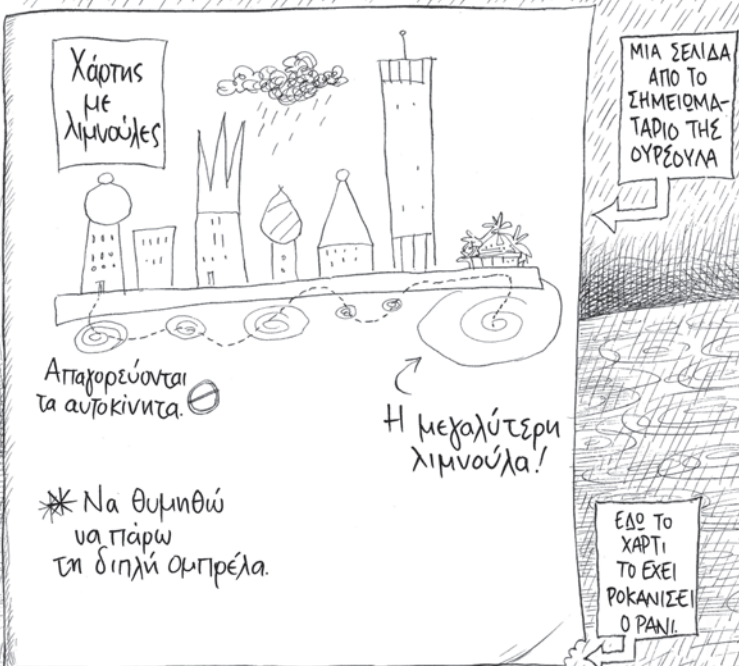 Χάρτης
με
λιμνούλες
ΜΙΑ ΣΕΛΙΔΑ
ΑΠΟ ΤΟ
ΣΗΜΕΙΩΜΑ-
ΤΑΡΙΟ ΤΗΣ
ΟΥΡΣΟΥΛΑ
Απαγορεύονται
τα αυτοκίνητα.
Η μεγαλύτερη
λιμνούλα!
* Να θυμηθώ
να πάρω
τη διπλή ομπρέλα.
ΕΔΩ ΤΟ
ΧΑΡΤΙ
ΤΟ ΕΧΕΙ
ΡΟΚΑΝΙΣΕΙ
Ο ΡΑΝΙ.